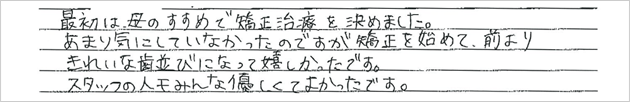 最初は、母のすすめで矯正治療を決めました。
あまり気にしていなかったのですが矯正を始めて、前より
きれいな歯並びになって嬉しかったです。
スタッフの人もみんな優しくてよかったです。